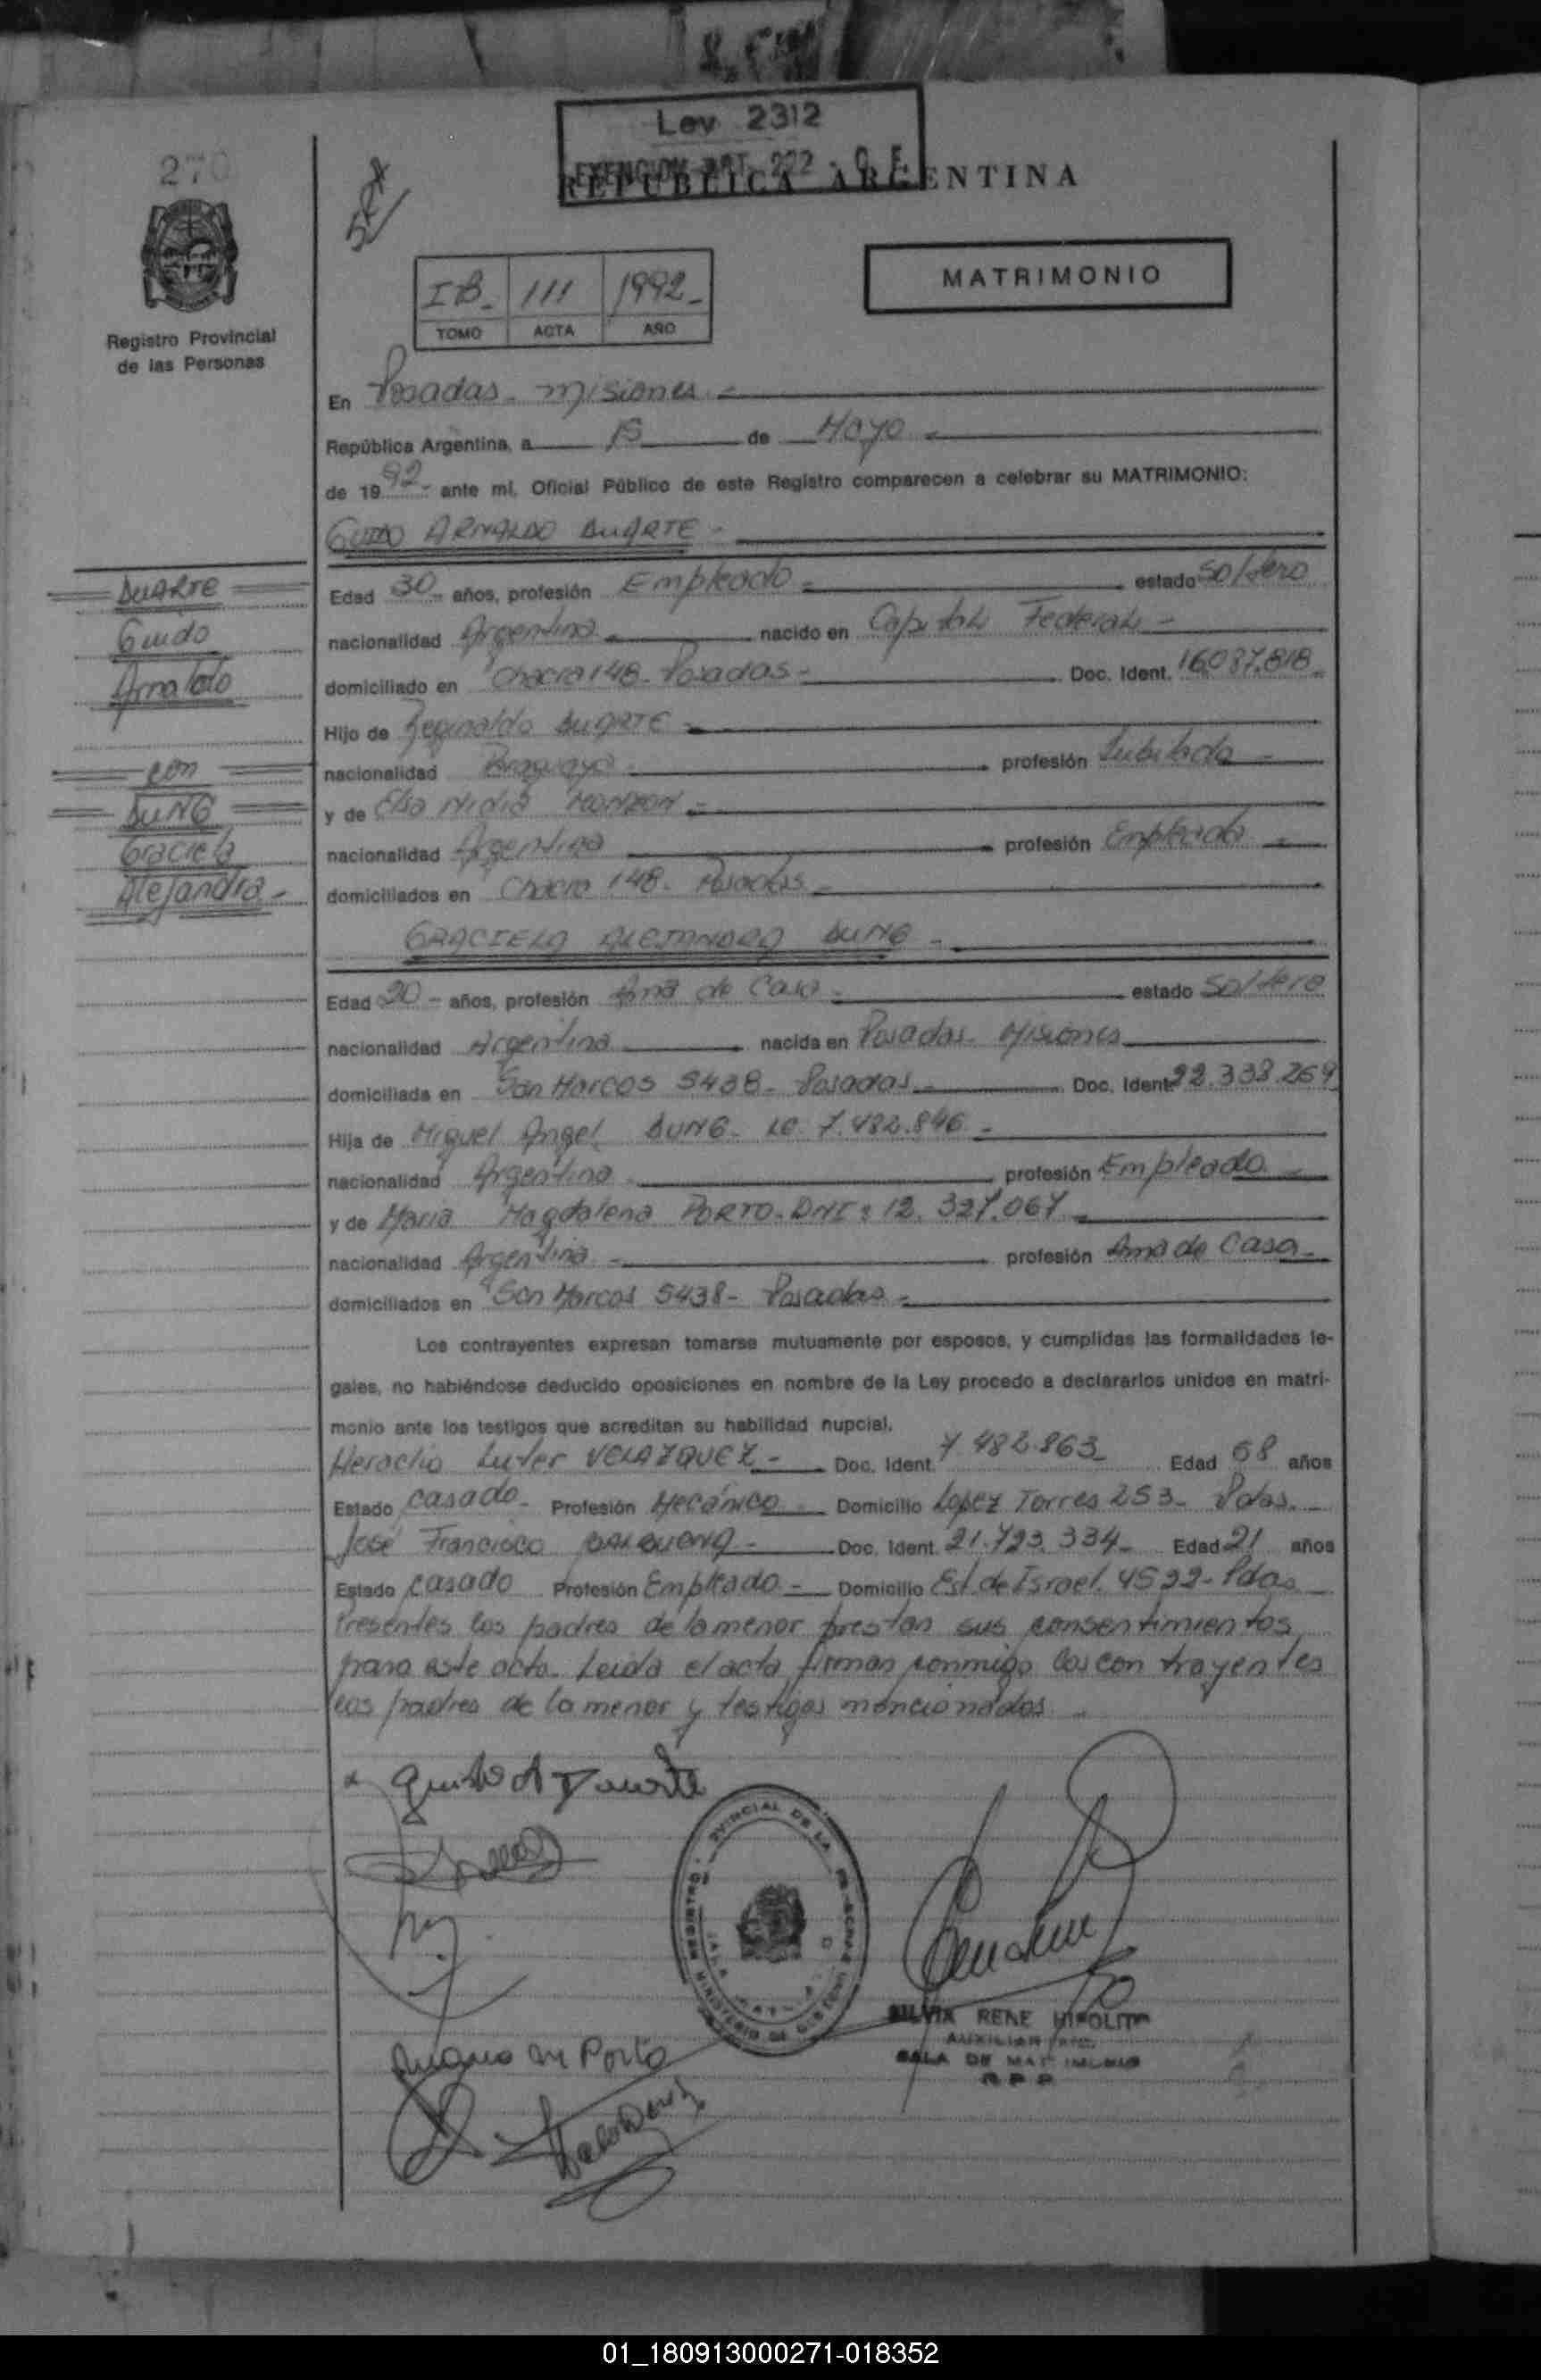 Ley 2312
EXENCION ART. 222 - C. F.
270
REPUBLICA ARGENTINA
MATRIMONIO
IB- 111 1992-
TOMO ACTA AÑO
Registro Provincial
de las Personas
En Posadas - Misiones -
República Argentina, a 15 de Mayo -
de 1992- ante mí, Oficial Público de este Registro comparecen a celebrar su MATRIMONIO:
GUIDO ARNALDO DUARTE -
DUARTE
Guido
Arnaldo
con
DUNG
Graciela
Alejandra -
Edad 30- años, profesión Empleado - estado Soltero
nacionalidad Argentina - nacido en Capital Federal -
domiciliado en Chacra 148 - Posadas - Doc. Ident. 16.087.818-
Hijo de Reginaldo DUARTE -
nacionalidad Paraguaya - profesión Jubilado -
y de Elsa Nidia MONZON -
nacionalidad Argentina profesión Empleada -
domiciliados en Chacra 148 - Posadas -
GRACIELA ALEJANDRA DUNG -
Edad 20- años, profesión Ama de Casa - estado Soltera
nacionalidad Argentina nacida en Posadas - Misiones
domiciliada en San Marcos 5438 - Posadas - Doc. Ident. 22.338.269
Hija de Miguel Angel DUNG - LE 7.482.846 -
nacionalidad Argentina - profesión Empleado -
y de María Magdalena PORTO - DNI: 12.327.067 -
nacionalidad Argentina - profesión Ama de Casa -
domiciliados en San Marcos 5438 - Posadas -
Los contrayentes expresan tomarse mutuamente por esposos, y cumplidas las formalidades le-
gales, no habiéndose deducido oposiciones en nombre de la Ley procedo a declararlos unidos en matri-
monio ante los testigos que acreditan su habilidad nupcial.
Heraclio Luter VELAZQUEZ - Doc. Ident. 7.482.863- Edad 68 años
Estado Casado - Profesión Mecánico Domicilio Lopez Torres 253 - Pdas. -
José Francisco BALBUENA - Doc. Ident. 21.723.334- Edad 21 años
Estado Casado Profesión Empleado - Domicilio Est. de Israel 4522 - Pdas
Presentes los padres de la menor prestan sus consentimientos
para este acto. Leida el acta firman conmigo los contrayentes
los padres de la menor y testigos mencionados -
Guido A Duarte
SILVIA RENE HIPOLITO
SALA DE MATRIMONIO
R P P
01_180913000271-018352